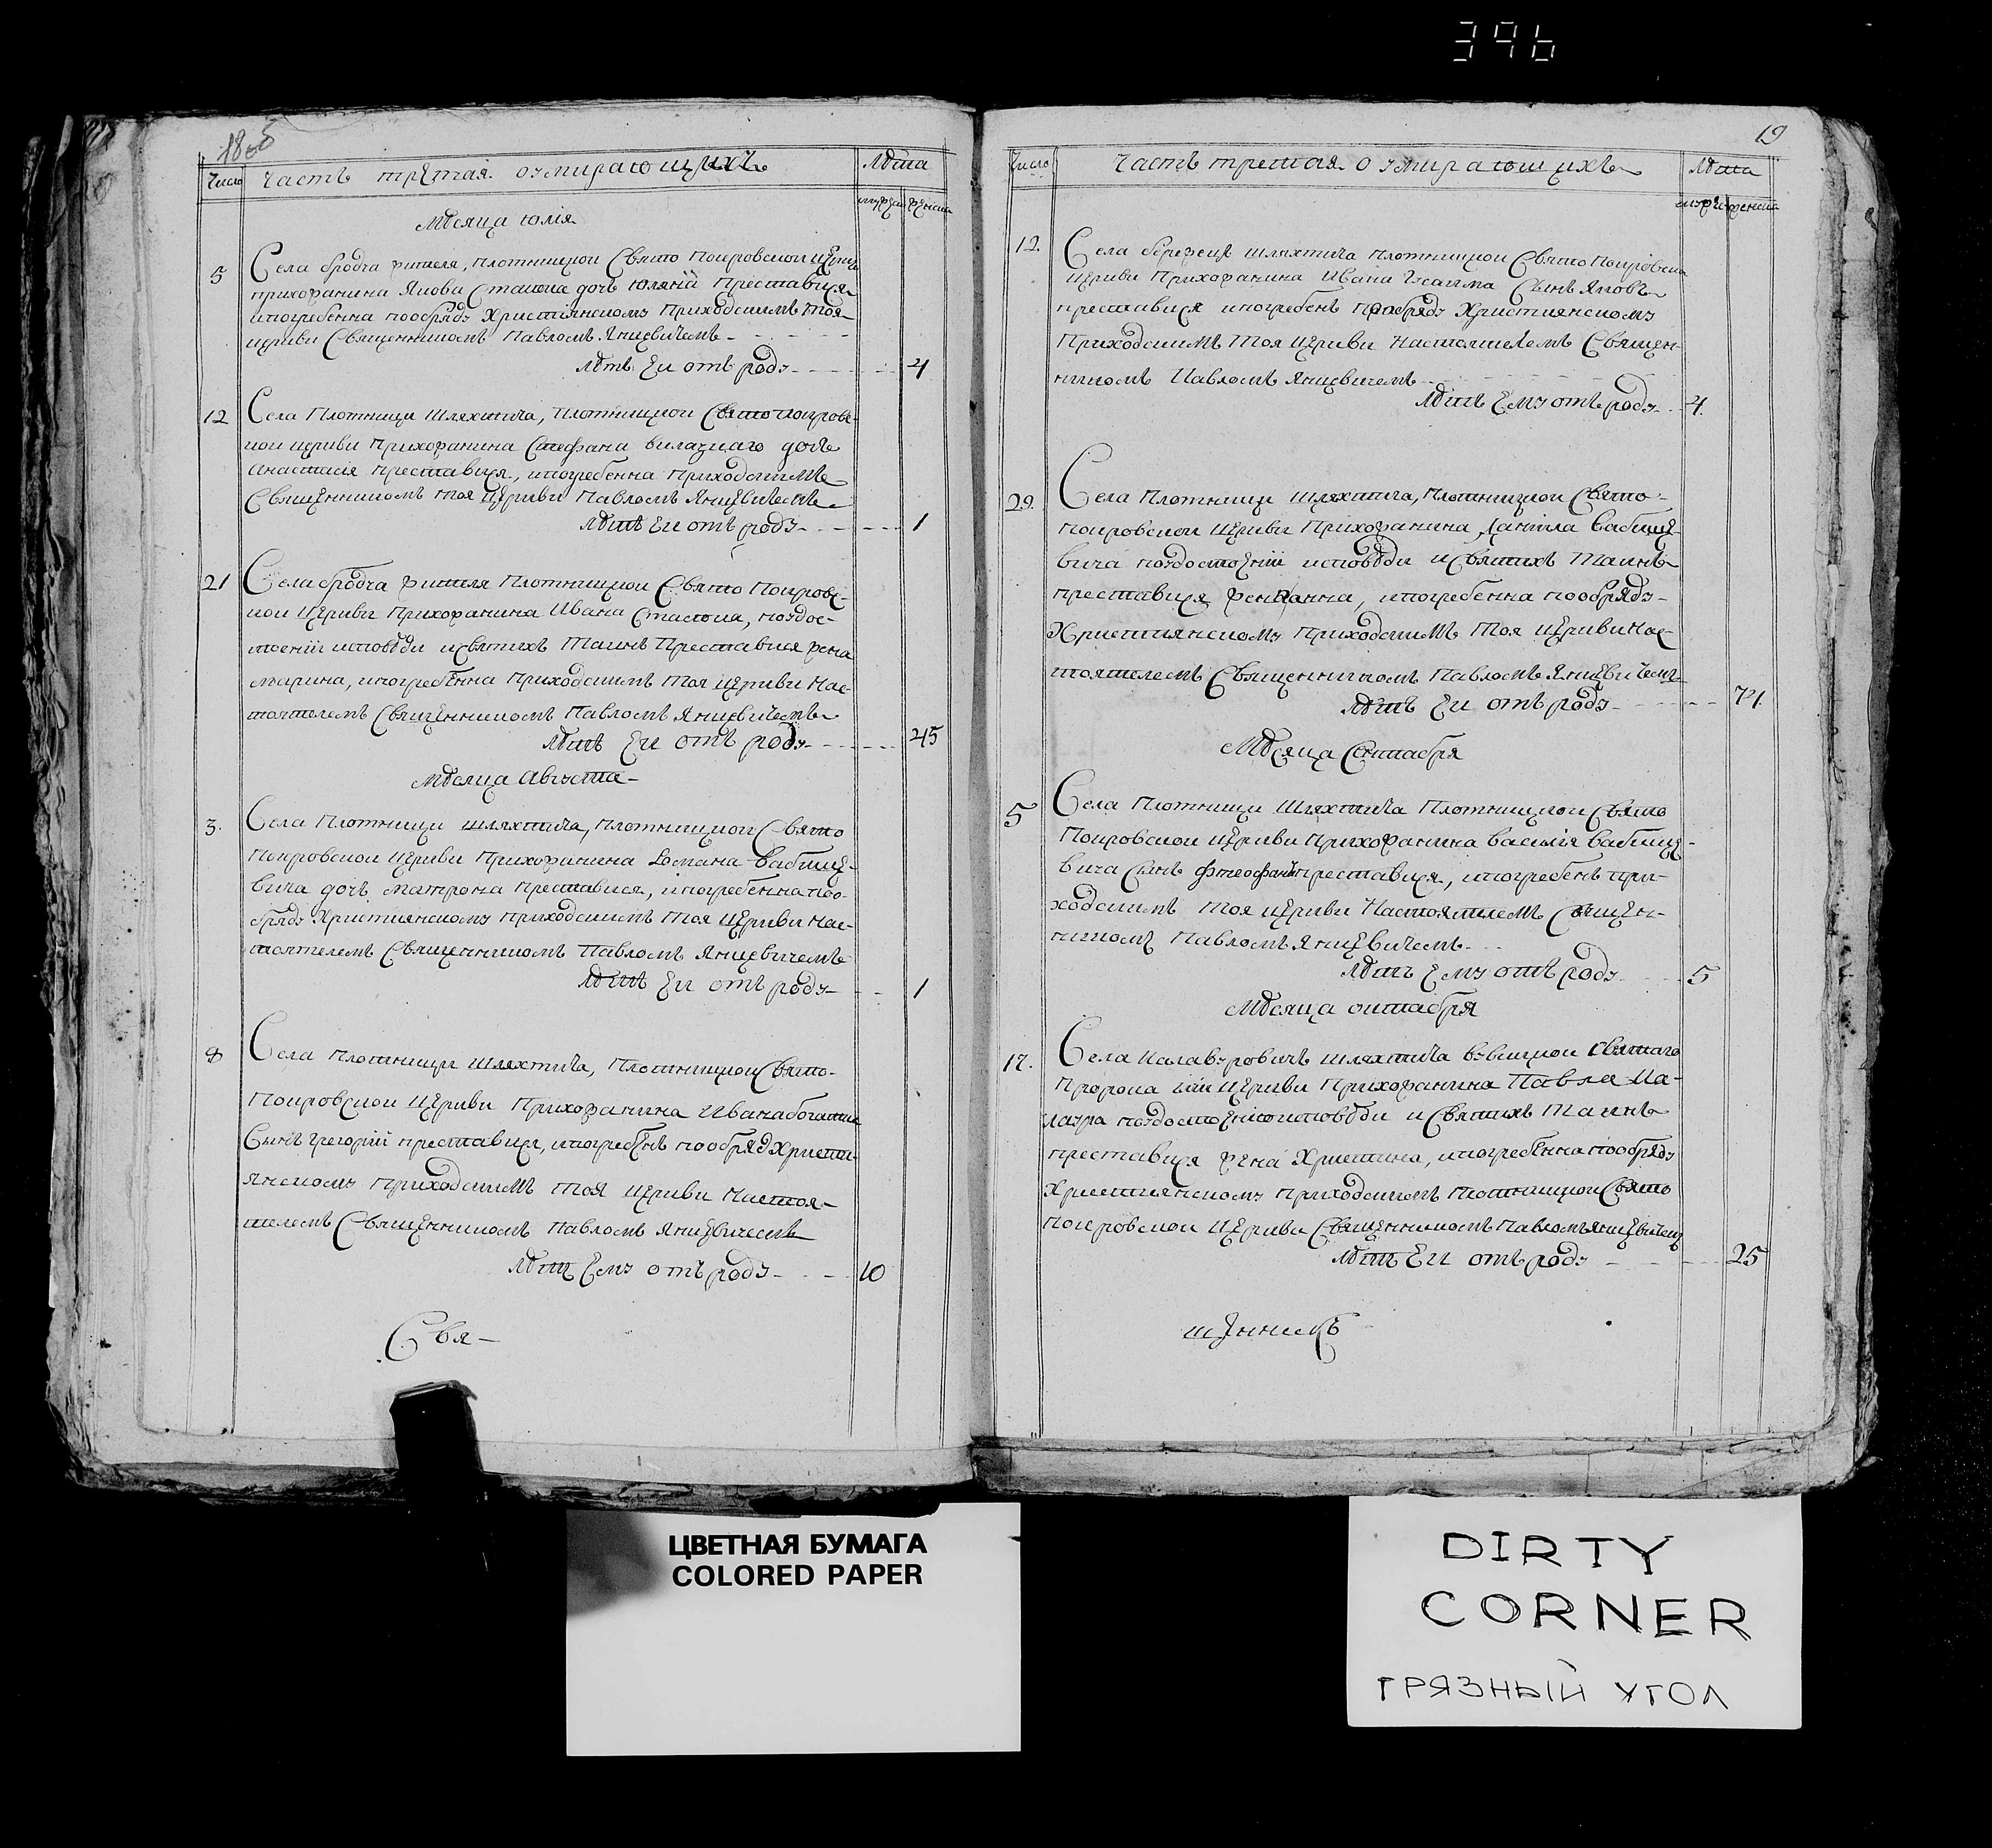 396
1805
Число Часть третая о умирающихъ Лѣта
мужеска женска
Мѣсяца Юлія
5 Села бродча жителя, плотницкой Свято Покровской церкви
прихожанина Якова Стаюка дочь Юлянïй преставися
и погребенна по обряду Християнскому приходскимъ тоя
церкви Священникомъ Павломъ Янцевичемъ
лѣтъ Еи отъ роду 4
12 Села Плотници Шляхтича, Плотницкой Свято Покровс-
кой церкви прихожанина Стефана дочь
анастасія преставися, и погребенна приходскимъ
Священникомъ тоя Церкви Павломъ Янцевичемъ
лѣтъ Еи отъ роду 1
21 Села бродча жителя Плотницкой Свято Покровс-
кой Церкви Прихожанина Ивана по удос-
тоеніи исповѣди и святихъ Таинъ Преставися жена
марина, и погребенна приходскимъ тоя церкви нас-
тоятелемъ Священникомъ Павломъ Янцевичемъ
лѣтъ Еи отъ роду 45
Мѣсяца Августа
3. Села Плотници шляхтича, Плотницкой Свято
Покровской Церкви Прихожанина Романа Бабице-
вича дочь матрона преставися, и погребенна по о-
бряду Християнскому приходскимъ тоя Церкви нас-
тоятелемъ Священникомъ Павломъ Янцевичемъ
лѣтъ Еи отъ роду 1
8 Села Плотници Шляхтича, Плотницкой Свято-
Покровской Церкви Прихожанина Ивана
Сынъ Григорій преставися, и погребенъ по обряд Христи-
янскому Приходскимъ тоя Церкви Настоя-
телемъ Священникомъ Павломъ Янцевичемъ
лѣтъ Ему отъ роду 10
Свя-
19
Число Часть третая о умирающихъ Лѣта
мужеска женска
12. Села бережци шляхтича плотницкой Свято Покровской
Церкви Прихожанина Ивана Сынъ Яковъ
преставися и погребенъ по обряду Християнскому
Приходскимъ тоя Церкви Настоятелемъ Священ-
никомъ Павломъ Янцевичемъ
лѣтъ Ему отъ роду 4.
29. Села Плотници шляхтича, Плотницкой Свято-
покровской Церкви Прихожанина, Бабице-
вича по удостоеніи исповѣди и Святихъ Таинъ
преставися жена Анна, и погребенна по обряду
Християнскому Приходскимъ тоя Церкви нас-
тоятелемъ Священникомъ Павломъ Янцевичемъ
лѣтъ Еи отъ роду 74.
Мѣсяца Сентабря
5 Села Плотници Шляхтича Плотницкой Свято
Покровской Церкви Прихожанина Василія Бабице-
вича Сынъ преставися, и погребенъ при-
ходскимъ тоя церкви Настоятелемъ Священ-
никомъ Павломъ Янцевичемъ
лѣтъ Ему отъ роду 5
Мѣсяца октабря
17. Села шляхтича Святаго
Пророка Церкви Прихожанина Павла Ма-
зура по удостоенію исповѣди и Святихъ Таинъ
преставися жена Христина, и погребенна по обряду
Християнскому приходскимъ плотницкой Свято
Покровской Церкви Священникомъ Павломъ Янцевичемъ
лѣтъ Еи отъ роду 25
щенникъ
ЦВЕТНАЯ БУМАГА
COLORED PAPER
DIRTY
CORNER
ГРЯЗНЫЙ УГОЛ